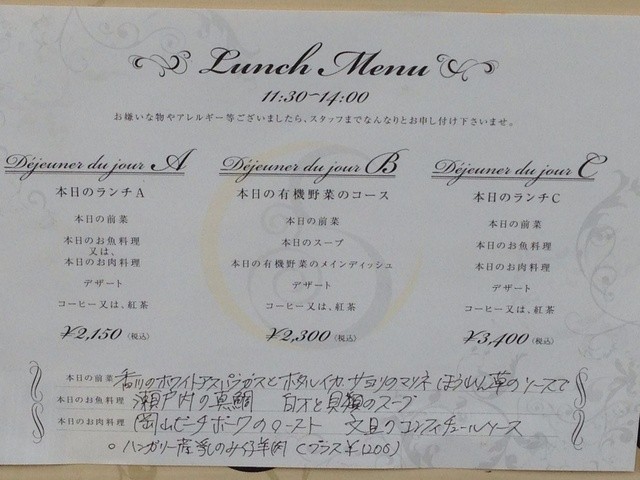 Lunch Menu
11:30~14:00
お嫌いな物やアレルギー等ございましたら、スタッフまでなんなりとお申し付け下さいませ。
Déjeuner du jour A
本日のランチA
本日の前菜
本日のお魚料理
又は、
本日のお肉料理
デザート
コーヒー又は、紅茶
¥2,150（税込）
Déjeuner du jour B
本日の有機野菜のコース
本日の前菜
本日のスープ
本日の有機野菜のメインディッシュ
デザート
コーヒー又は、紅茶
¥2,300（税込）
Déjeuner du jour C
本日のランチC
本日の前菜
本日のお魚料理
本日のお肉料理
デザート
コーヒー又は、紅茶
¥3,400（税込）
本日の前菜 香川のホワイトアスパラガスとホタルイカ、サヨリのマリネ ほうれん草のソースで
本日のお魚料理 瀬戸内の真鯛 白才と貝類のスープ
本日のお肉料理 岡山ピーチポークのロースト 文旦のコンフィチュールソース
○ ハンガリー産乳のみ仔羊肉（プラス¥1200）